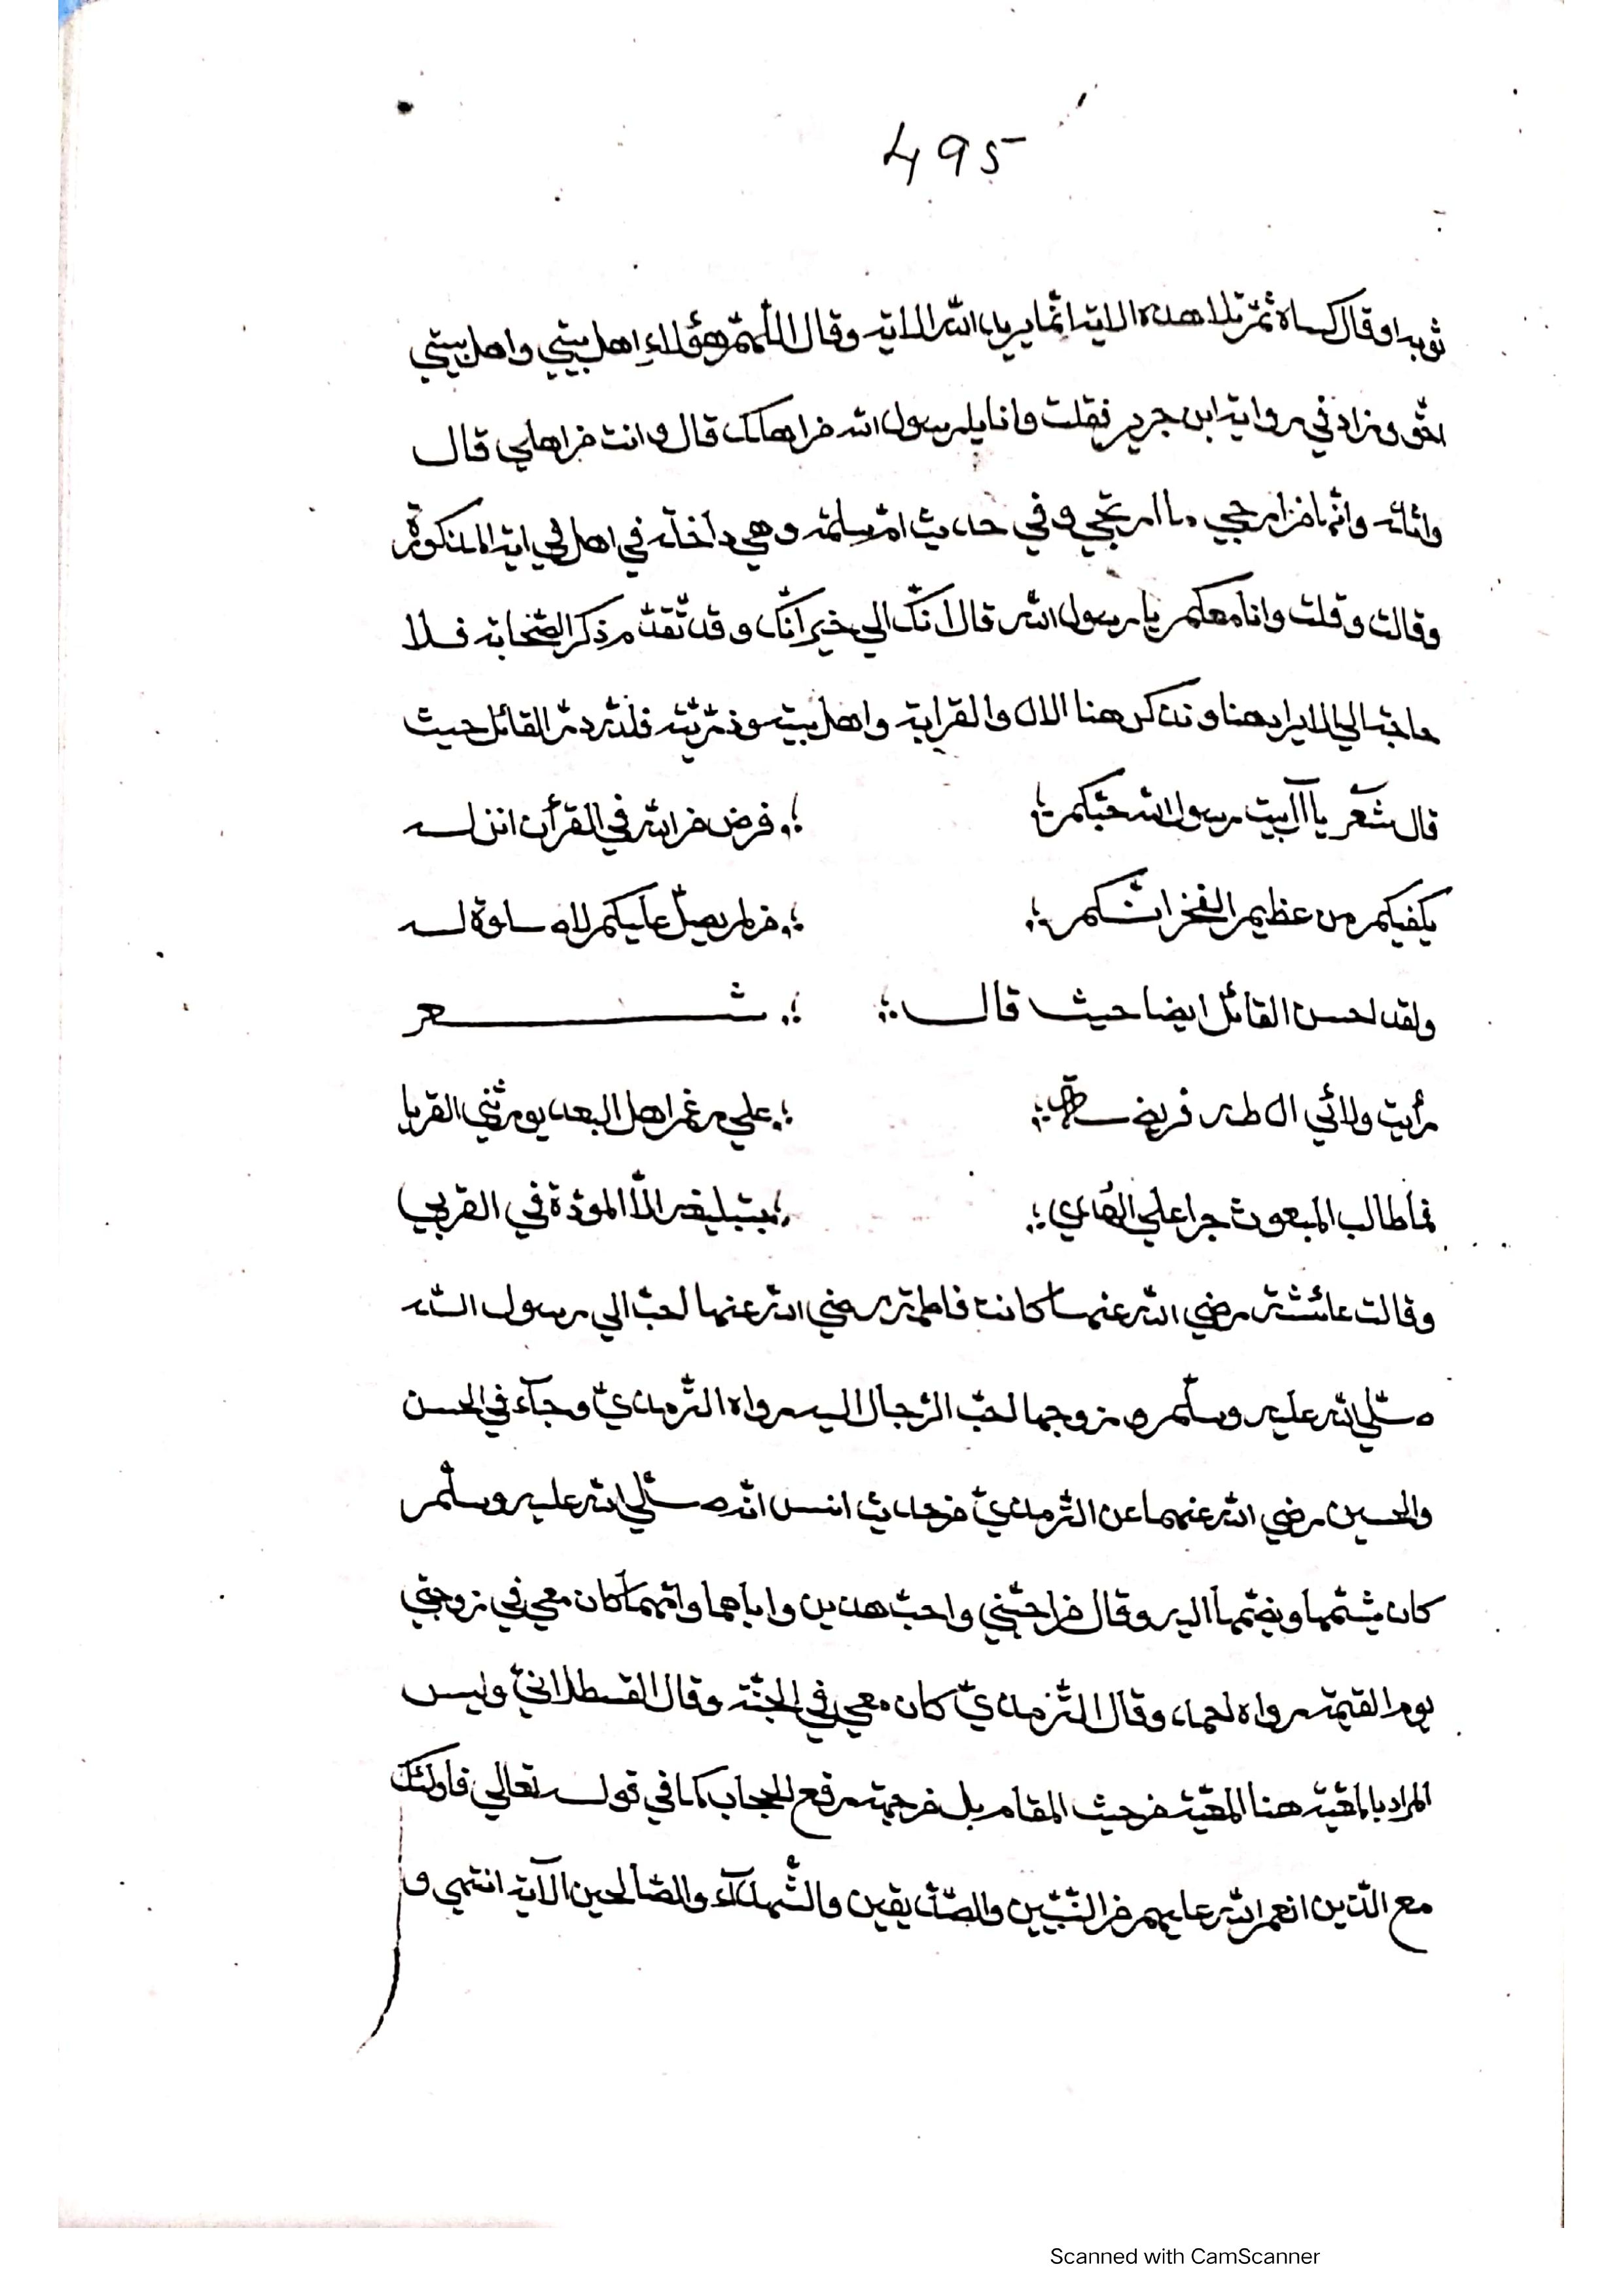 495
ثوبه او قال كساه ثمّ تلا هذه الاية انّما يريد الله الاية وقال اللّهمّ هؤلاءِ اهل بيتي واهل بيتي
احقّ وزاد في رواية ابن جرير فقلت وانا يا رسول الله من اهلك قال وانت من اهلي قال
واثلة وانّها من ارجي ما ارتجي وفي حديث امّ سلمة وهي داخلة في اهل في اية المذكورة
وقالت وقلت وانا معكم يا رسول الله قال انّك الي خير انّك وقد تّقدّم ذكر الصّحابة فلا
حاجة الي الايراد هنا ونذكر هنا الال والقرابة واهل بيته وذرّيّته فللّه درّ القائل حيث
قال شعر يا آل بيت رسول الله حبّكم ؛ ؛ فرض من الله في القرأن انزله
يكفيكم من عظيم الفخر انّكم ؛ ؛ من لم يصلّ عليكم لا صلوة له
ولقد احسن القائل ايضا حيث قال ؛ ؛ شعر
رأيت ولائي ال طه فريضة ؛ ؛ علي رغم اهل البعد يورثني القربا
فما طالب المبعوث اجرا علي الهُدي ؛ ؛ بتبليغه الّا المودّة في القربي
وقالت عائشة رضي الله عنها كانت فاطمة رضي الله عنها احبّ الي رسول الله
صلّي الله عليه وسلّم وزوجها احبّ الرّجال اليه رواه التّرمذيّ وجآء في الحسن
والحسين رضي الله عنهما عن التّرمذيّ من حديث انس انّه صلّي الله عليه وسلّم
كان يشمّهما ويضمّهما اليه وقال من احبّني واحبّ هذين واباهما وامّهما كان معي في زوجتي
يوم القيمة رواه احمد وقال التّرمذيّ كان معي في الجنّة وقال القسطلانيّ وليس
المراد بالمعيّة هنا المعيّة من حيث المقام بل من جهة رفع الحجاب كما في قوله تعالي فاولئك
مع الّذين انعم الله عليهم من النّبيّين والصّدّيقين والشّهدآء والصّالحين الآية انتهي و
Scanned with CamScanner